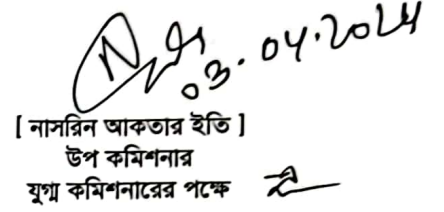 03.04.2024
[ নাসরিন আকতার ইতি ]
উপ কমিশনার
যুগ্ম কমিশনারের পক্ষে